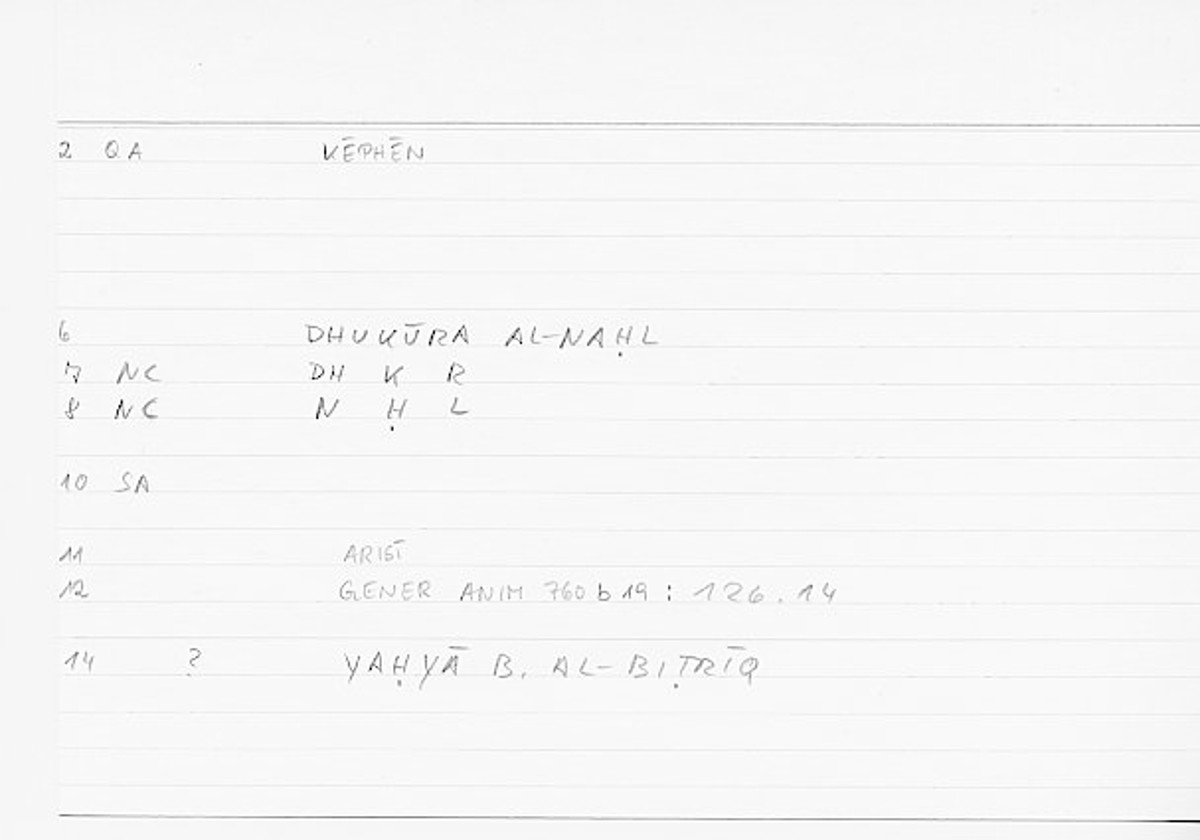 2 QA KĒPHĒN
6 DHUKŪRA AL-NAḤL
7 NC DH K R
8 NC N Ḥ L
10 SA
11 ARIST
12 GENER ANIM 760 b 19 : 126.14
14 ? YAḤYĀ B. AL-BIṬRĪQ